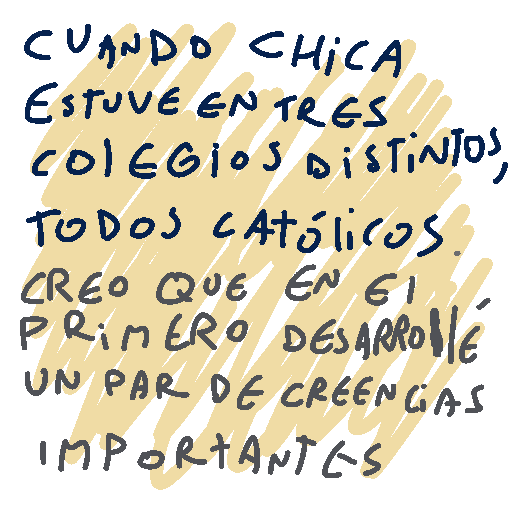 CUANDO CHICA
ESTUVE EN TRES
COLEGIOS DISTINTOS,
TODOS CATÓLICOS.
CREO QUE EN El
PRIMERO DESARROllÉ
UN PAR DE CREENCIAS
IMPORTANTES